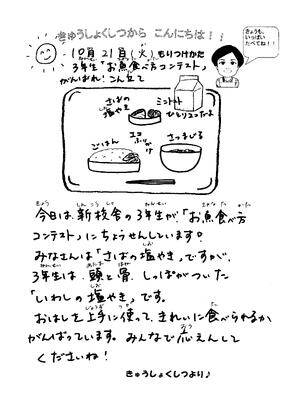 きゅうしょくしつから こんにちは！！
きょうも、
いっぱい
たべてね！！
10月21日(火)もりつけかた
3年生「お魚食べ方コンテスト」
がんばれ！こん立て
さばの
塩やき
ミニトマト
ひとり2こだよ
ごはん
エコ
ふりかけ
さつまじる
今日は、新校舎の3年生が、「お魚食べ方
コンテスト」にちょうせんしています。
みなさんは「さばの塩やき」ですが、
3年生は、頭と骨、しっぽがついた
「いわしの塩やき」です。
おはしを上手に使って、きれいに食べられるか
がんばっています。みんなで応えんして
くださいね！
きゅうしょくしつより♪